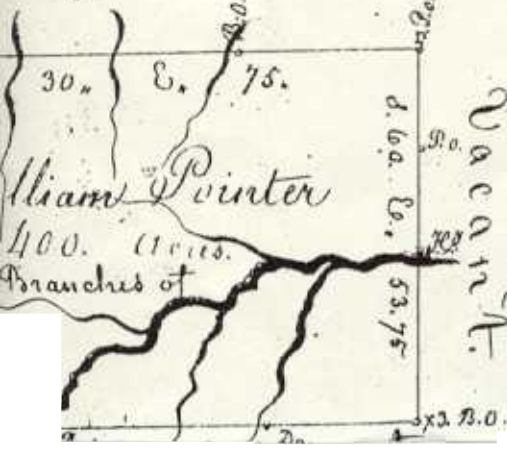 B.O.
P.o.
30,, E. 75.
P.o.
lliam Pointer
400. Acres.
Branches of
S. 60. E. 53.75
Vacant.
x3. B.O.
Do